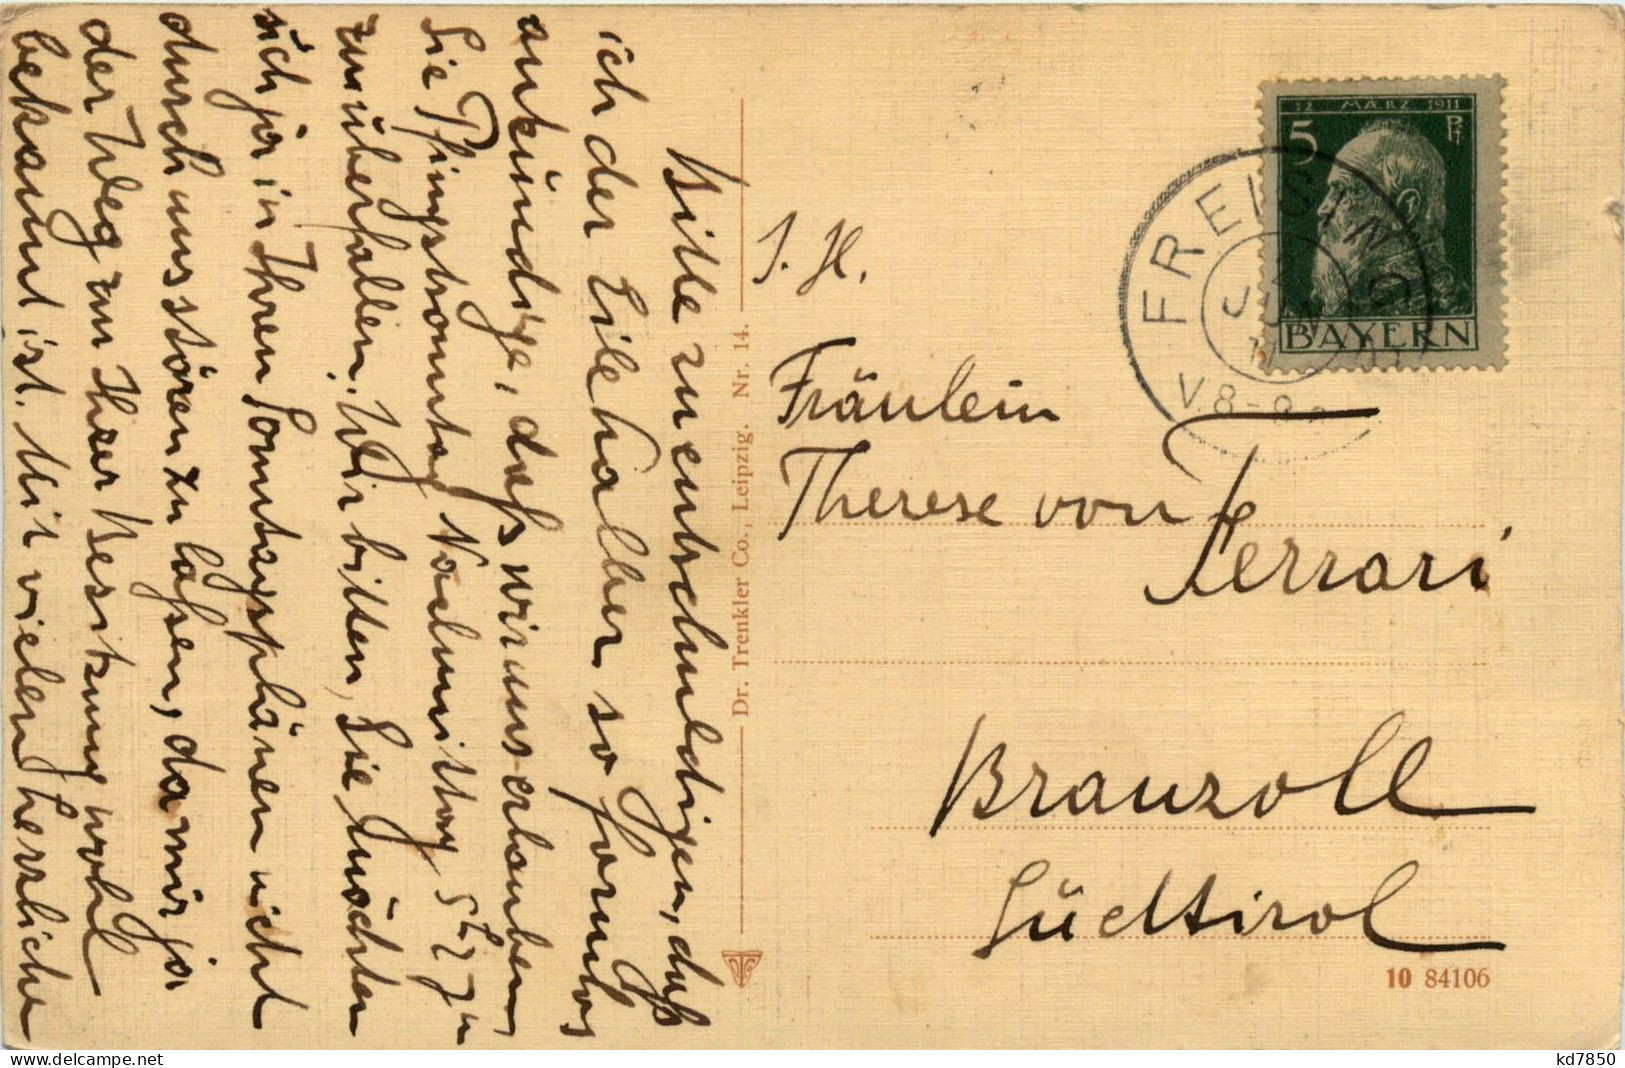 Bitte zu entschuldigen, daß
ich der Eile halber so formlos
ankündige, daß wir uns erlauben,
Sie Pfingstsonntag Nachmittag
zu überfallen. Wir bitten, Sie möchten
sich ja in Ihren Sonntagsplänen nicht
durch uns stören zu laßen, da wir ja
der Weg zu Ihrer Besitzung wohl
bekannt ist. Mit vielen herzlichen
Dr. Trenkler Co., Leipzig. Nr. 14.
12 MÄRZ 1911
5 Pf
BAYERN
FREISING
JUN
V 8-9
I. H.
Fräulein
Therese von
Ferrari
Branzoll
Südtirol
10 84106
kd7850